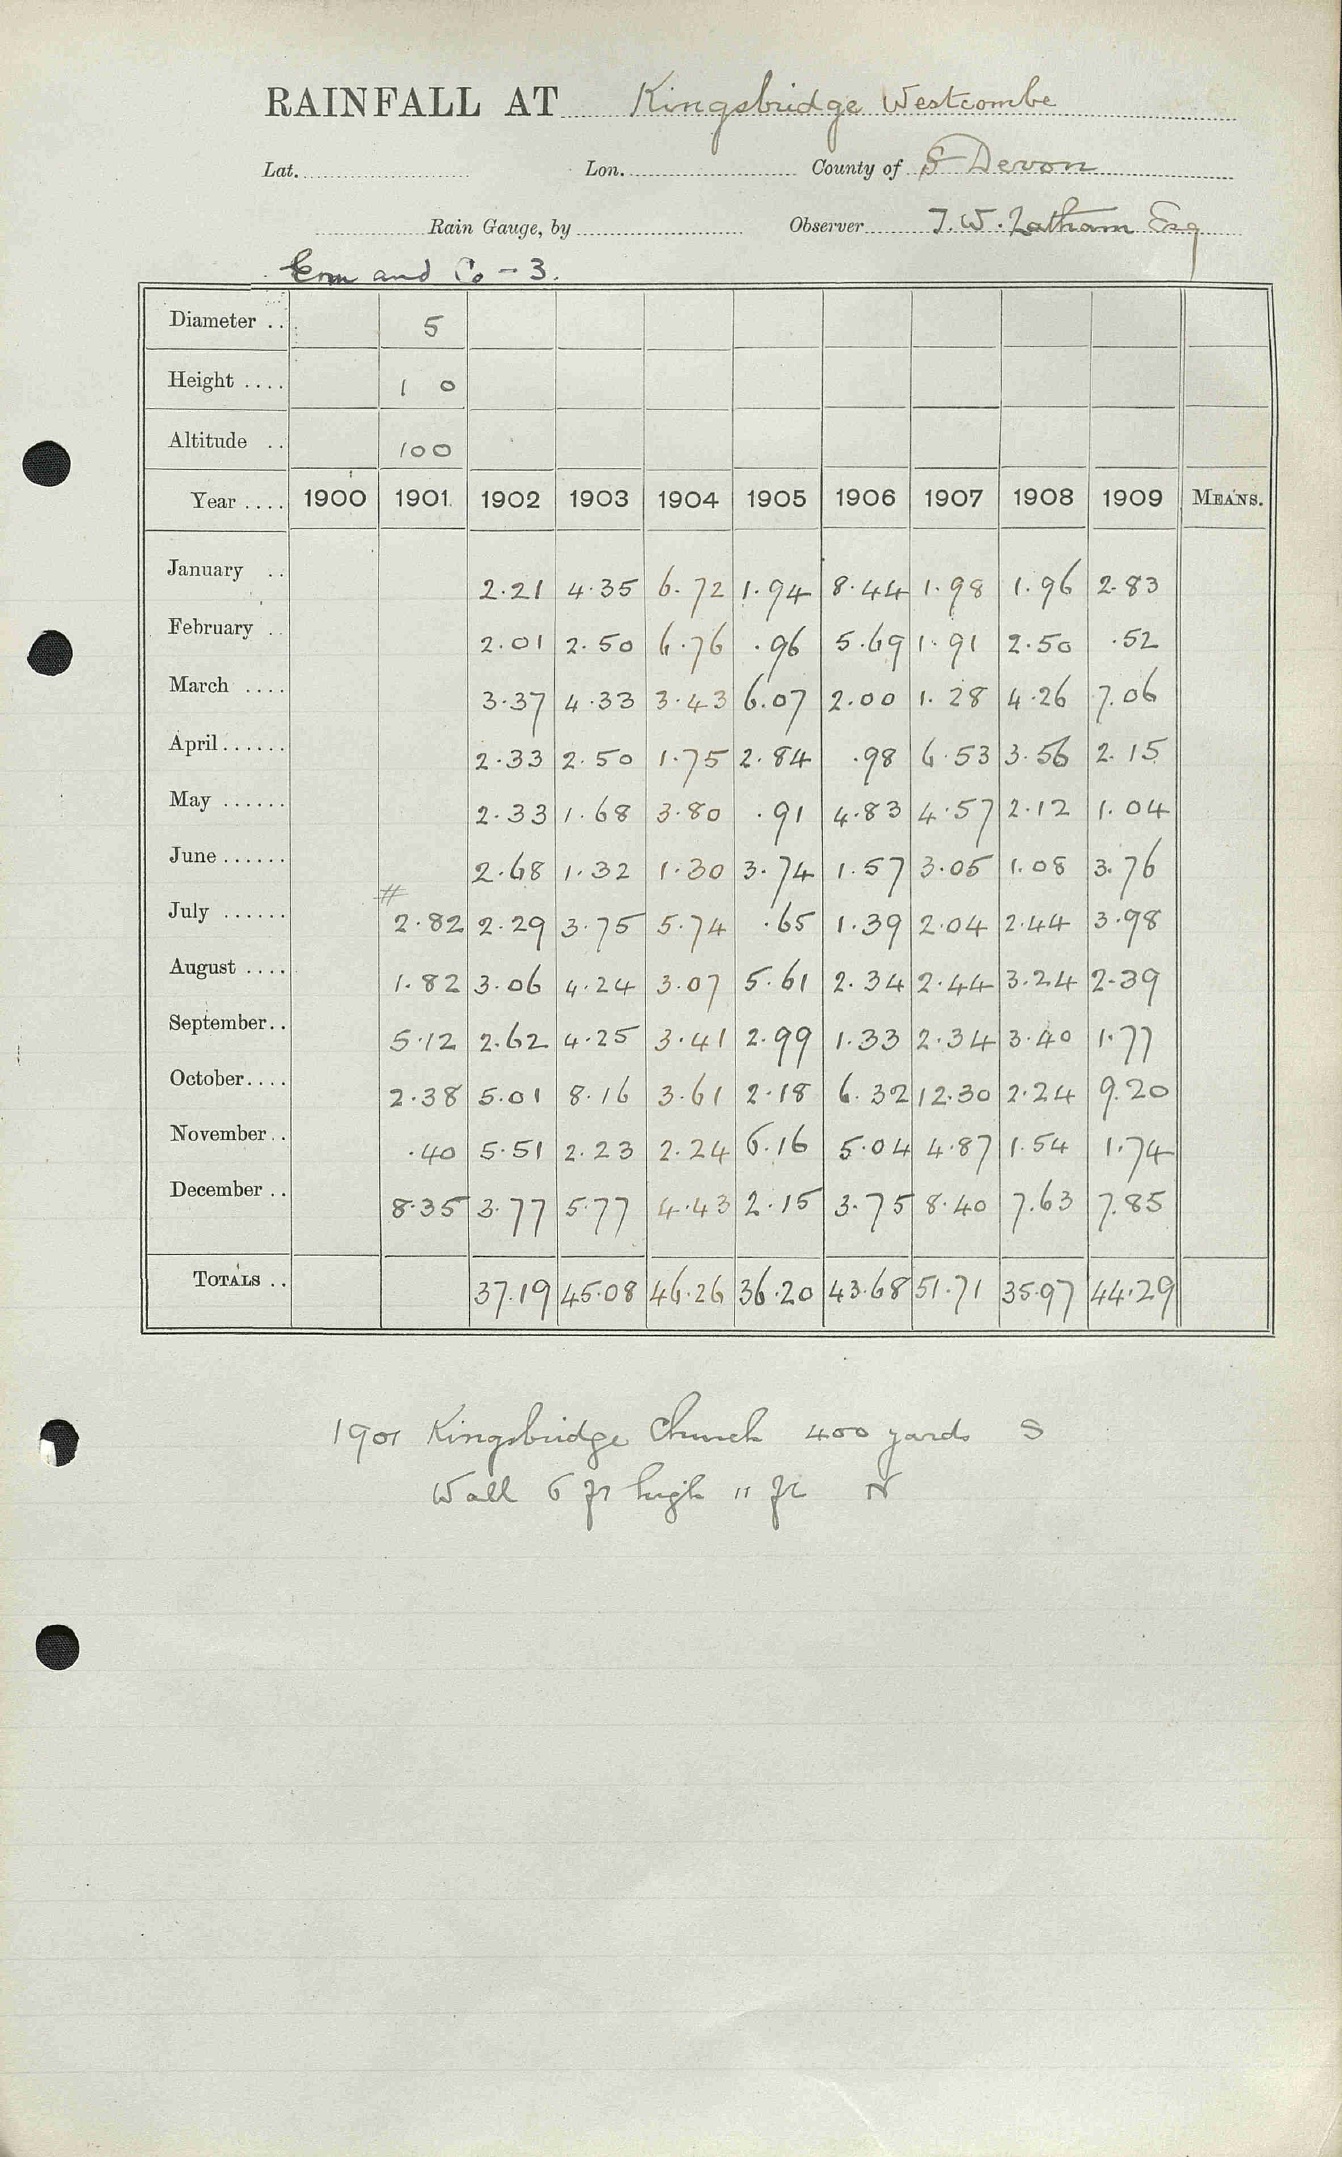 RAINFALL AT Kingsbridge Westcombe
Lat. Lon. County of S Devon
Rain Gauge, by Observer T. W. Latham Esq
and Co - 3.
Diameter .. 5
Height .... 1 0
Altitude .. 100
Year .... 1900 1901 1902 1903 1904 1905 1906 1907 1908 1909 MEANS.
January .. 2.21 4.35 6.72 1.94 8.44 1.98 1.96 2.83
February .. 2.01 2.50 6.76 .96 5.69 1.91 2.50 .52
March .... 3.37 4.33 3.43 6.07 2.00 1.28 4.26 7.06
April...... 2.33 2.50 1.75 2.84 .98 6.53 3.56 2.15
May ...... 2.33 1.68 3.80 .91 4.83 4.57 2.12 1.04
June...... 2.68 1.32 1.30 3.74 1.57 3.05 1.08 3.76
#
July ...... 2.82 2.29 3.75 5.74 .65 1.39 2.04 2.44 3.98
August .... 1.82 3.06 4.24 3.07 5.61 2.34 2.44 3.24 2.39
September.. 5.12 2.62 4.25 3.41 2.99 1.33 2.34 3.40 1.77
October.... 2.38 5.01 8.16 3.61 2.18 6.32 12.30 2.24 9.20
November.. .40 5.51 2.23 2.24 6.16 5.04 4.87 1.54 1.74
December .. 8.35 3.77 5.77 4.43 2.15 3.75 8.40 7.63 7.85
TOTALS .. 37.19 45.08 46.26 36.20 43.68 51.71 35.97 44.29
1901 Kingsbridge Church 400 yards S
Wall 6 ft high 11 ft N